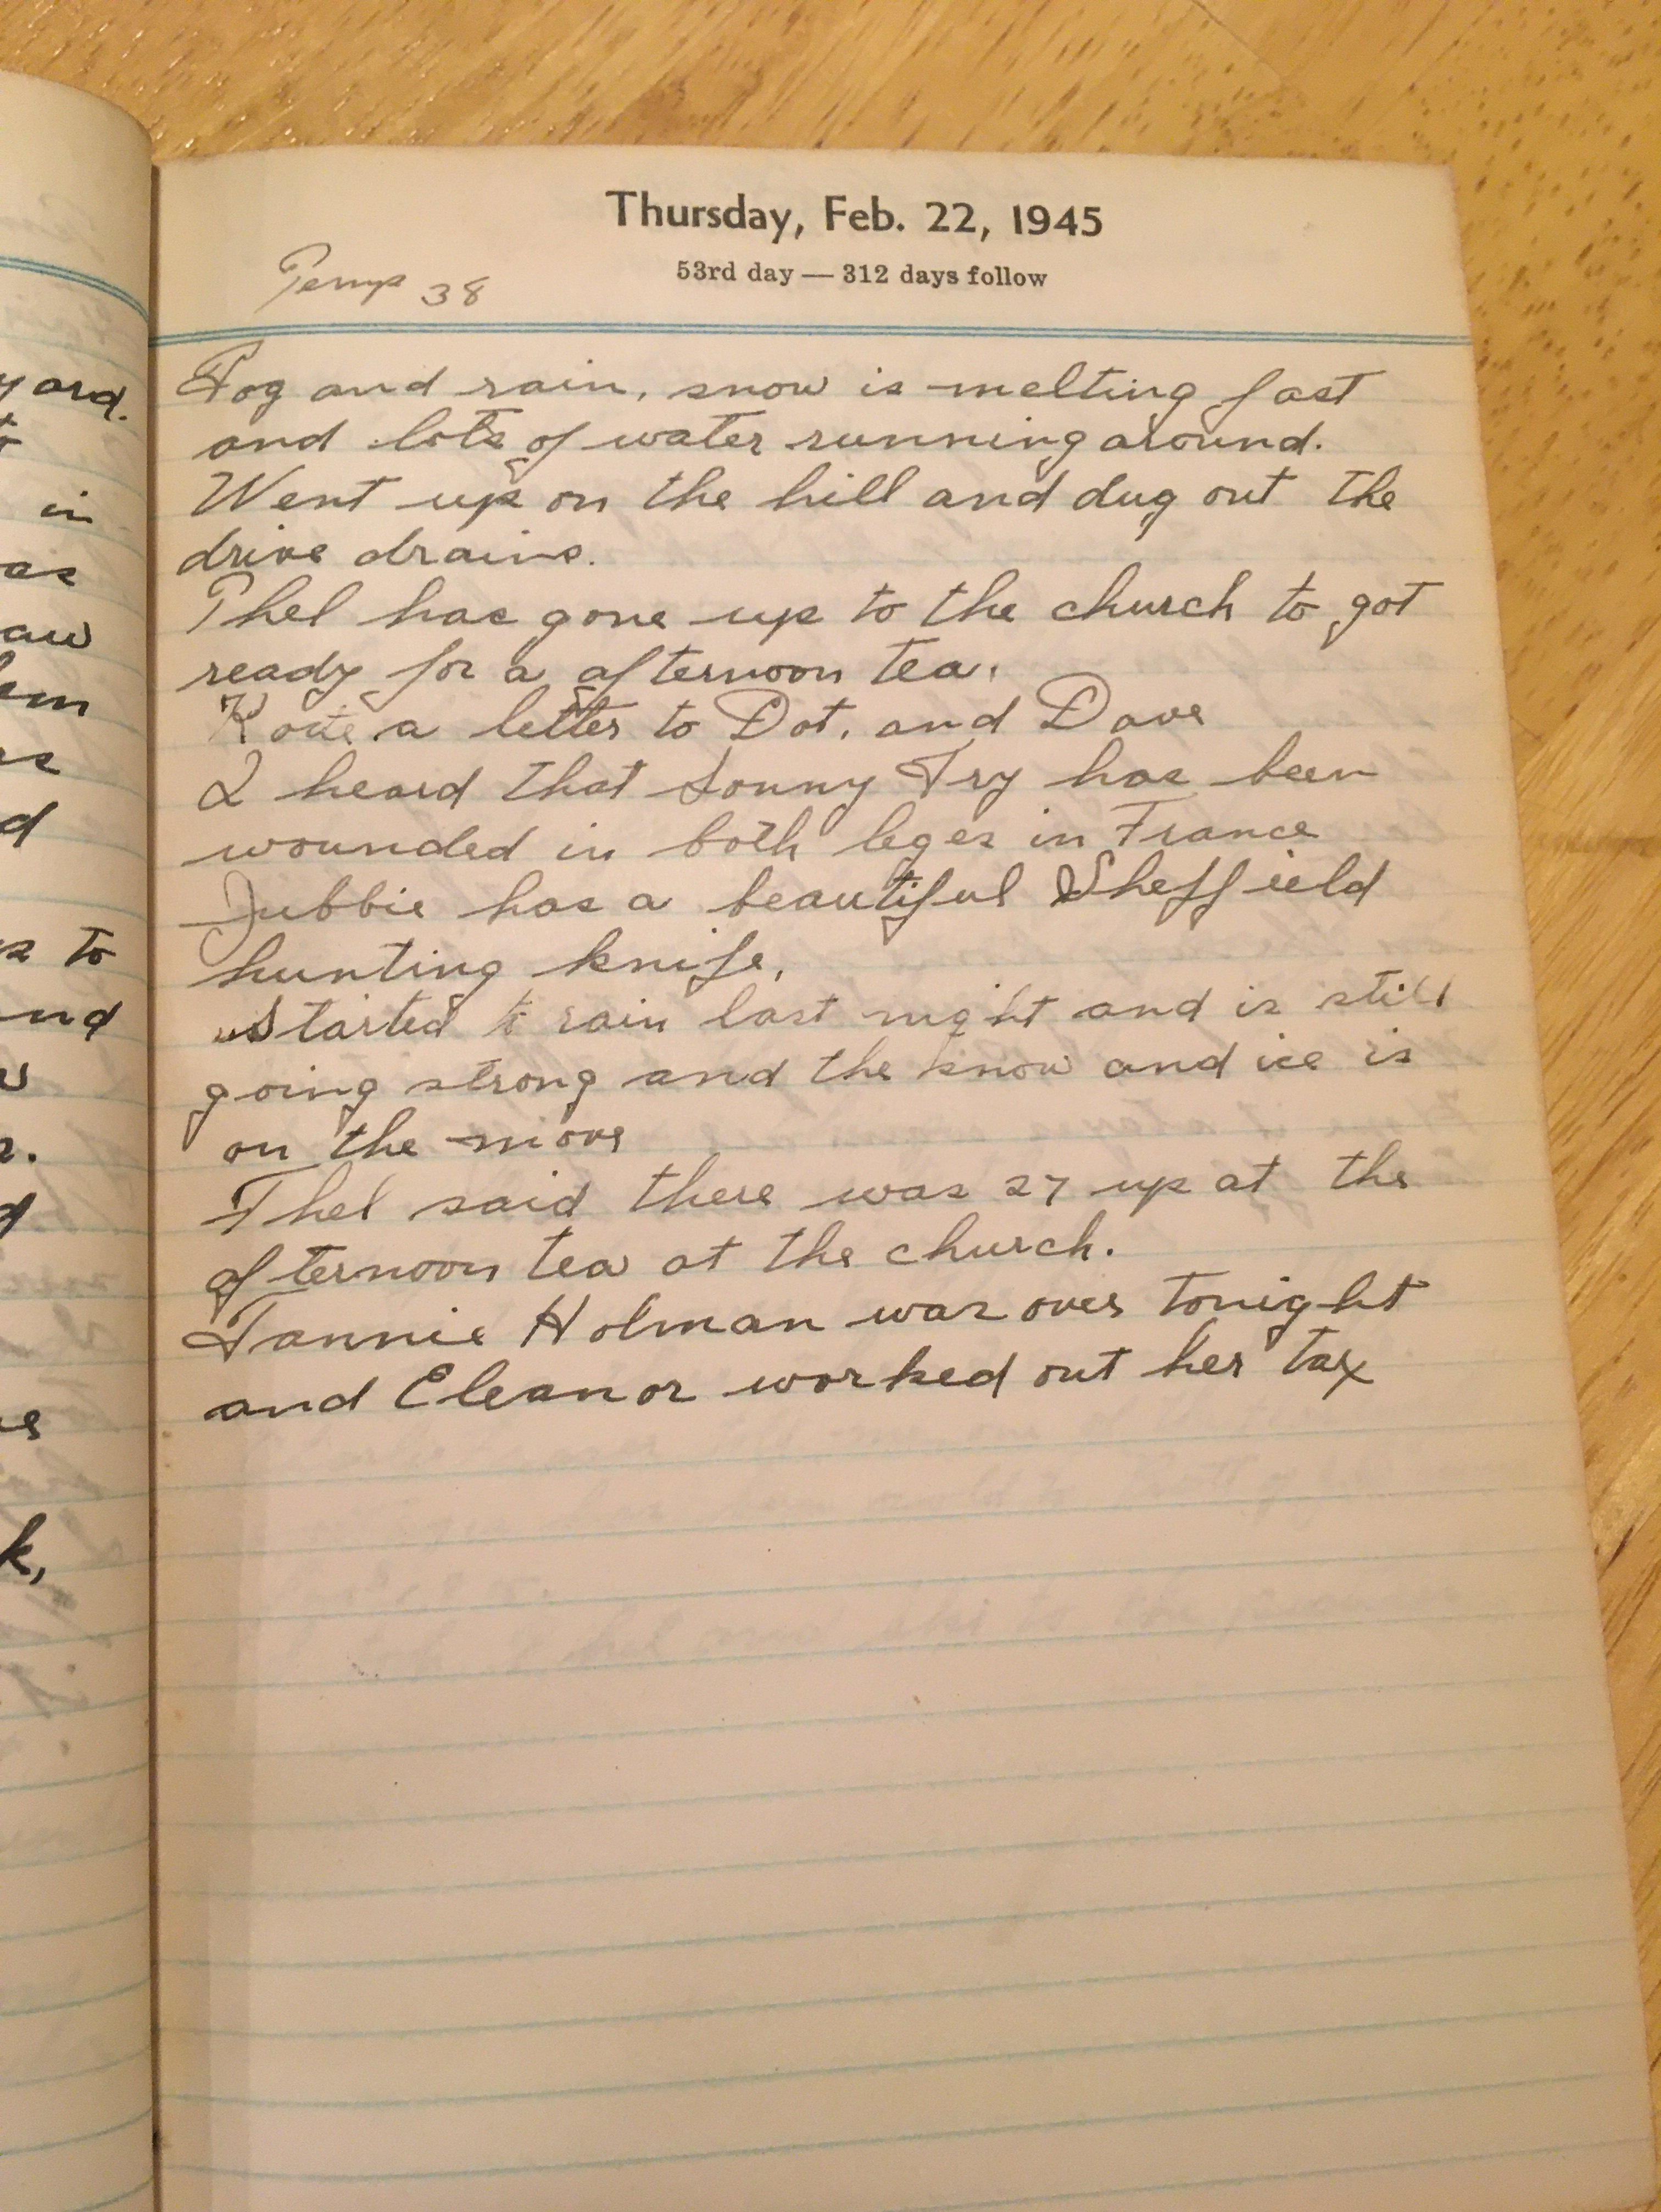 yard.
in
as
aw
em
d
to
nd
k,
Thursday, Feb. 22, 1945
53rd day — 312 days follow
Temp 38
Fog and rain, snow is melting fast
and lots of water running around.
Went up on the hill and dug out the
drive drains.
Thel has gone up to the church to got
ready for a afternoon tea.
a letter to Dot, and Dave
I heard that Sonny Fry has been
wounded in both leges in France
Jubbie has a beautiful Sheffield
hunting knife.
Started to rain last night and is still
going strong and the snow and ice is
on the move
Thel said there was 27 up at the
afternoon tea at the church.
Fannie Holman was over tonight
and Eleanor worked out her tax